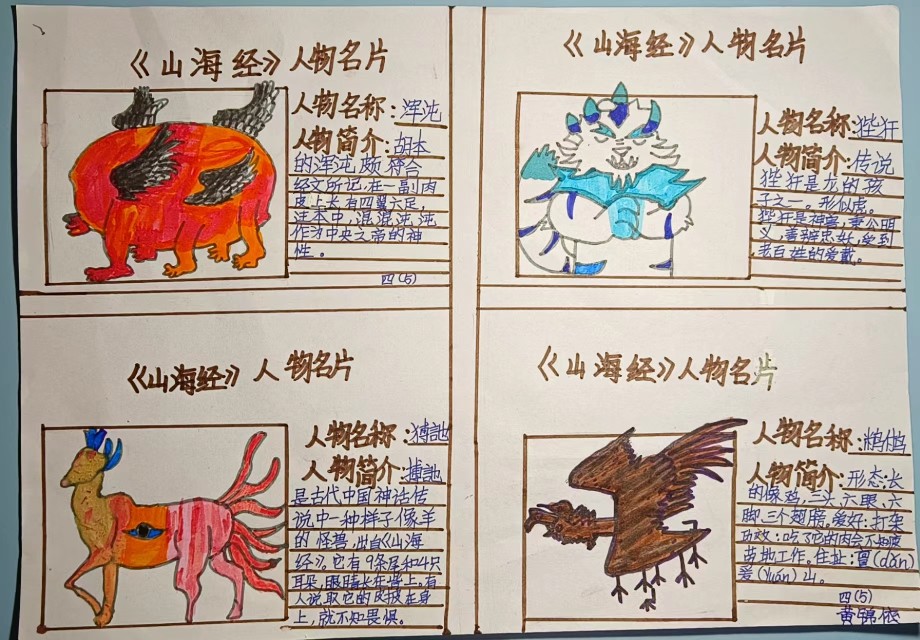 《山海经》人物名片
人物名称：浑沌
人物简介：胡本
的浑沌颇符合
经文所记，在一副肉
皮上长有四翼六足，
汪本中，混混沌沌
作为中央之帝的神
性。
四(5)
《山海经》人物名片
人物名称：狴犴
人物简介：传说
狴犴是龙的孩
子之一。形似虎。
狴犴是神兽，秉公明
义，善辨忠奸，受到
老百姓的爱戴。
《山海经》人物名片
人物名称：猼訑
人物简介：猼訑
是古代中国神话传
说中一种样子像羊
的怪兽，出自《山海
经》。它有9条尾和4只
耳朵，眼睛长在背上。有
人说取它的皮披在身
上，就不知畏惧。
《山海经》人物名片
人物名称：鹈鸺
人物简介：形态：长
的像鸡，三头六眼、六
脚、三个翅膀。爱好：打架
功效：吃了它的肉会不知疲
劳地工作。住址：亶(dǎn)
爰(yuán)山。
四(5)
黄锦依